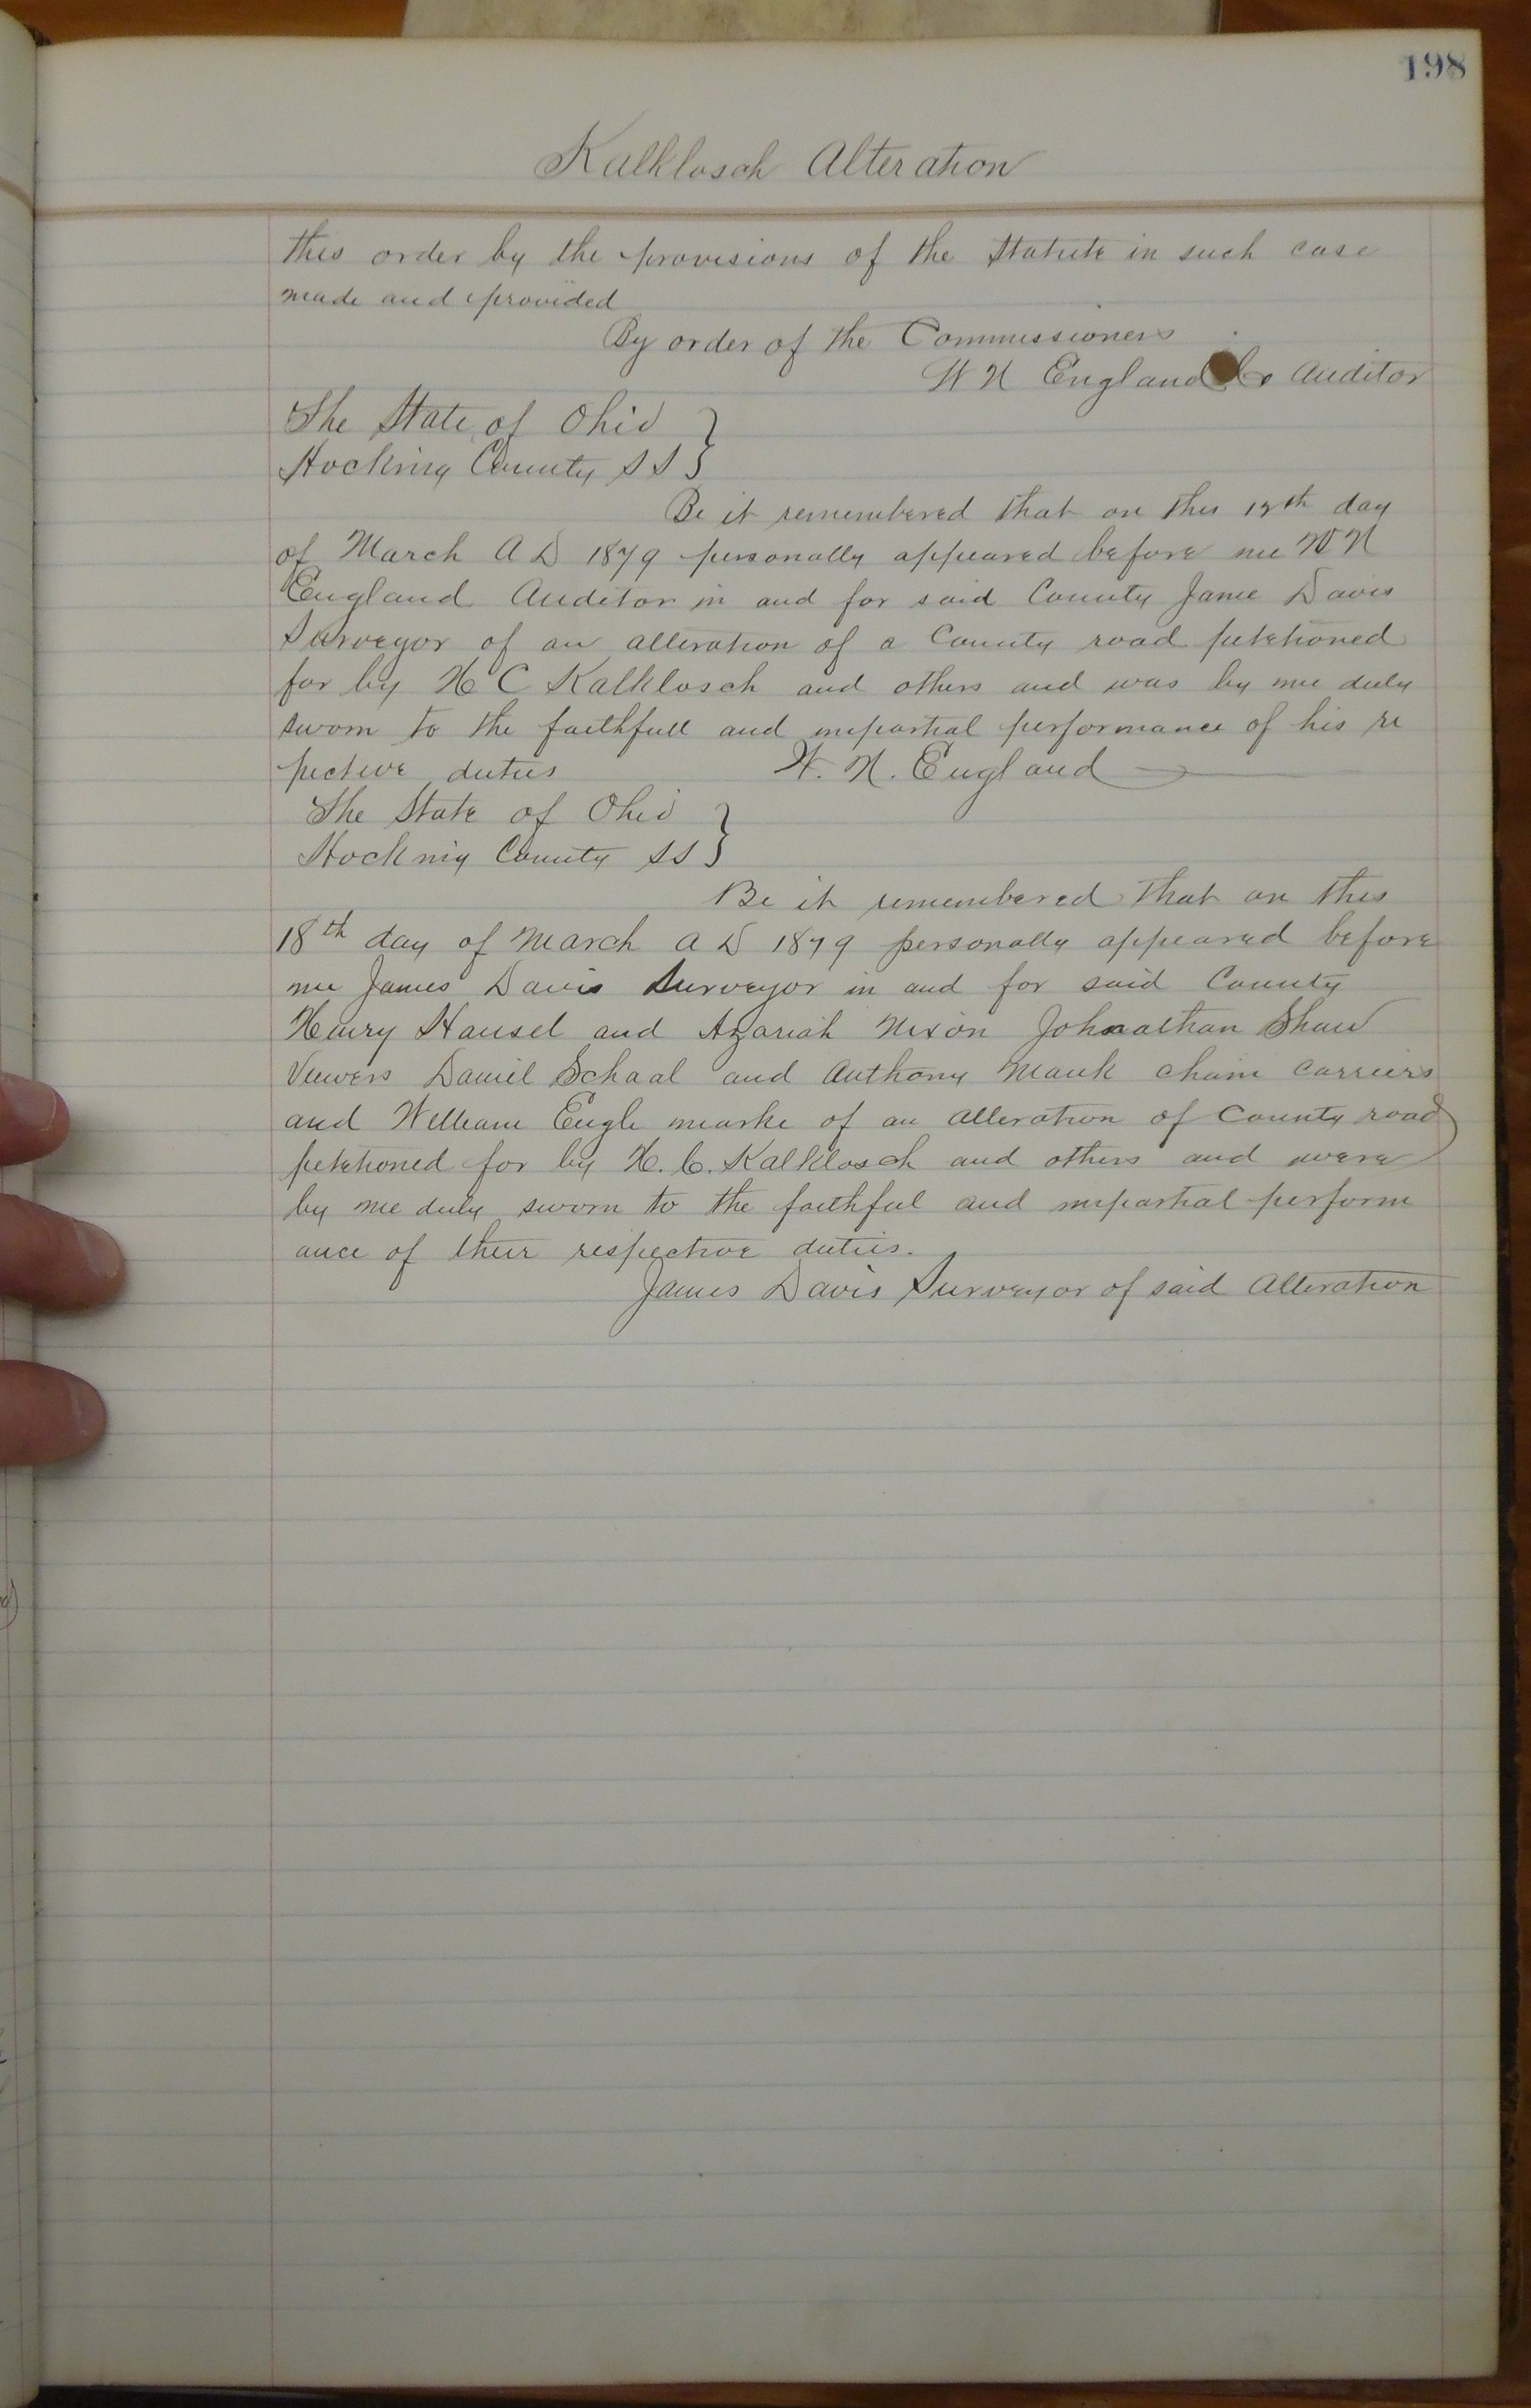 198
Kalklosch Alteration
this order by the provisions of the Statute in such case
made and provided
By order of the Commissioners
W N England Co Auditor
The State of Ohio }
Hocking County SS }
Be it remembered that on this day
of March A D 1879 personally appeared before me W N
England Auditor in and for said County Jame Davis
Surveyor of an alteration of a County road petetioned
for by H C Kalklosch and others and was by me duly
sworn to the faithfull and impartial performance of his re
pective duties W. N. England
The State of Ohio }
Hocking County SS }
Be it remembered that on this
18th day of March A D 1879 personally appeared before
me James Davis Surveyor in and for said County
Henry Hansel and Azariah Nixon Johnathan Shaw
Viewers Daniel Schaal and Anthony Mauk chain carriers
and William Engle marke of an alteration of County road
petetioned for by H. C. Kalklosch and others and were
by me duly sworn to the faithful and impartial perform
ance of their respective duties.
James Davis Surveyor of said Alteration